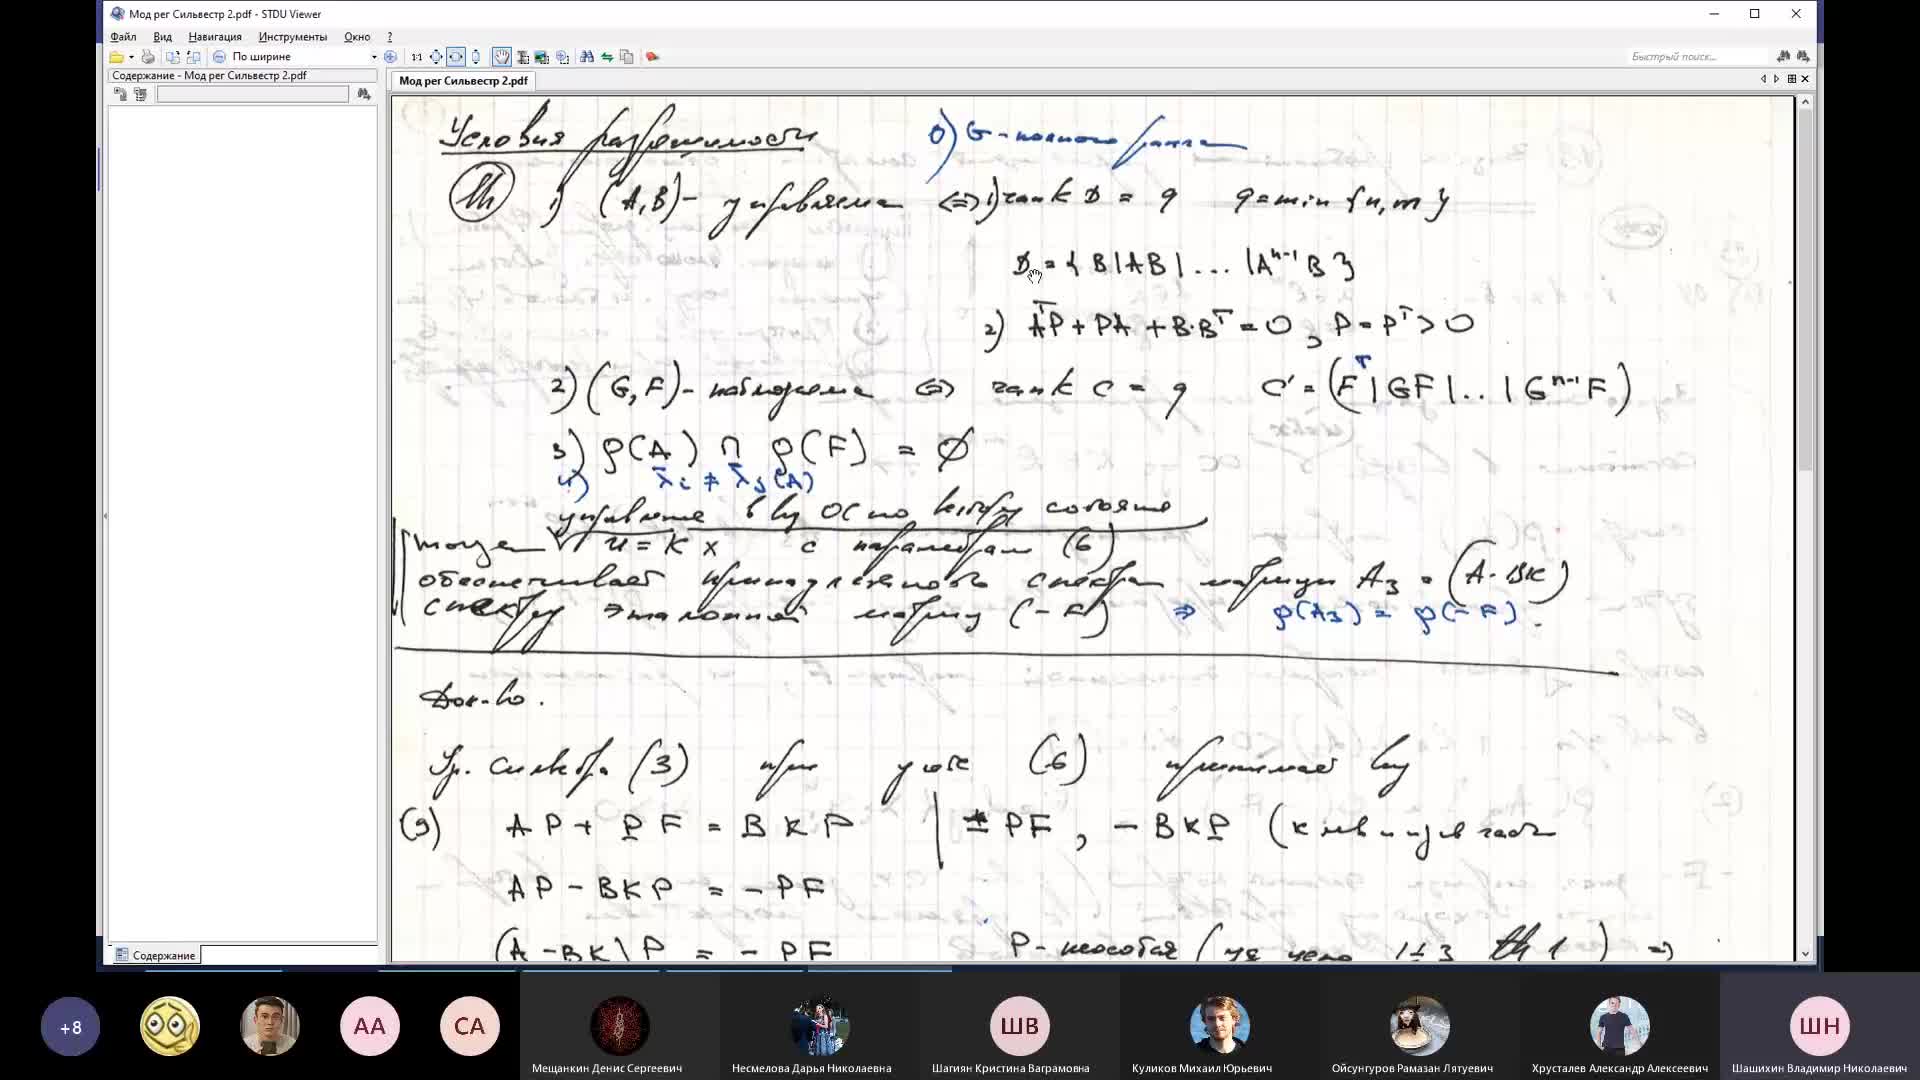 Мод рег Сильвестр 2.pdf - STDU Viewer
Файл Вид Навигация Инструменты Окно ?
По ширине
1:1
Быстрый поиск...
Содержание - Мод рег Сильвестр 2.pdf
Мод рег Сильвестр 2.pdf
Условия разрешимости
0) G - полного ранга
Th 1) (A,B) - управляема <=> 1) rank D = q q = min {n, m}
D = { B | AB | ... | Aⁿ⁻¹B }
2) AᵀP + PA + B·Bᵀ = 0, P = Pᵀ > 0
2) (G,F) - наблюдаема <=> rank C = q C' = (Fᵀ | GF | .. | Gⁿ⁻¹F)
3) ρ(A) ∩ ρ(F) = ∅
4) λi ≠ λj (A)
управление в виду ОС по вектору состояния
тогда u = K x с параметрами (6)
обеспечивает принадлежность спектра матрицы A₃ = (A - BK)
спектру эталонной матрицы (-F) => ρ(A₃) = ρ(-F).
Док-во.
Ур. Сильвестра (3) при учете (6) принимает вид
(9) AP + PF = BKP | ± PF, - BKP (к лев и прав части
AP - BKP = - PF
(A - BK) P = - PF P - неособая (1 ÷ 3 th 1) =>
Содержание
+8
АА
СА
Мещанкин Денис Сергеевич
Несмелова Дарья Николаевна
ШВ
Шагиян Кристина Ваграмовна
Куликов Михаил Юрьевич
Ойсунгуров Рамазан Лятуевич
Хрусталев Александр Алексеевич
ШН
Шашихин Владимир Николаевич